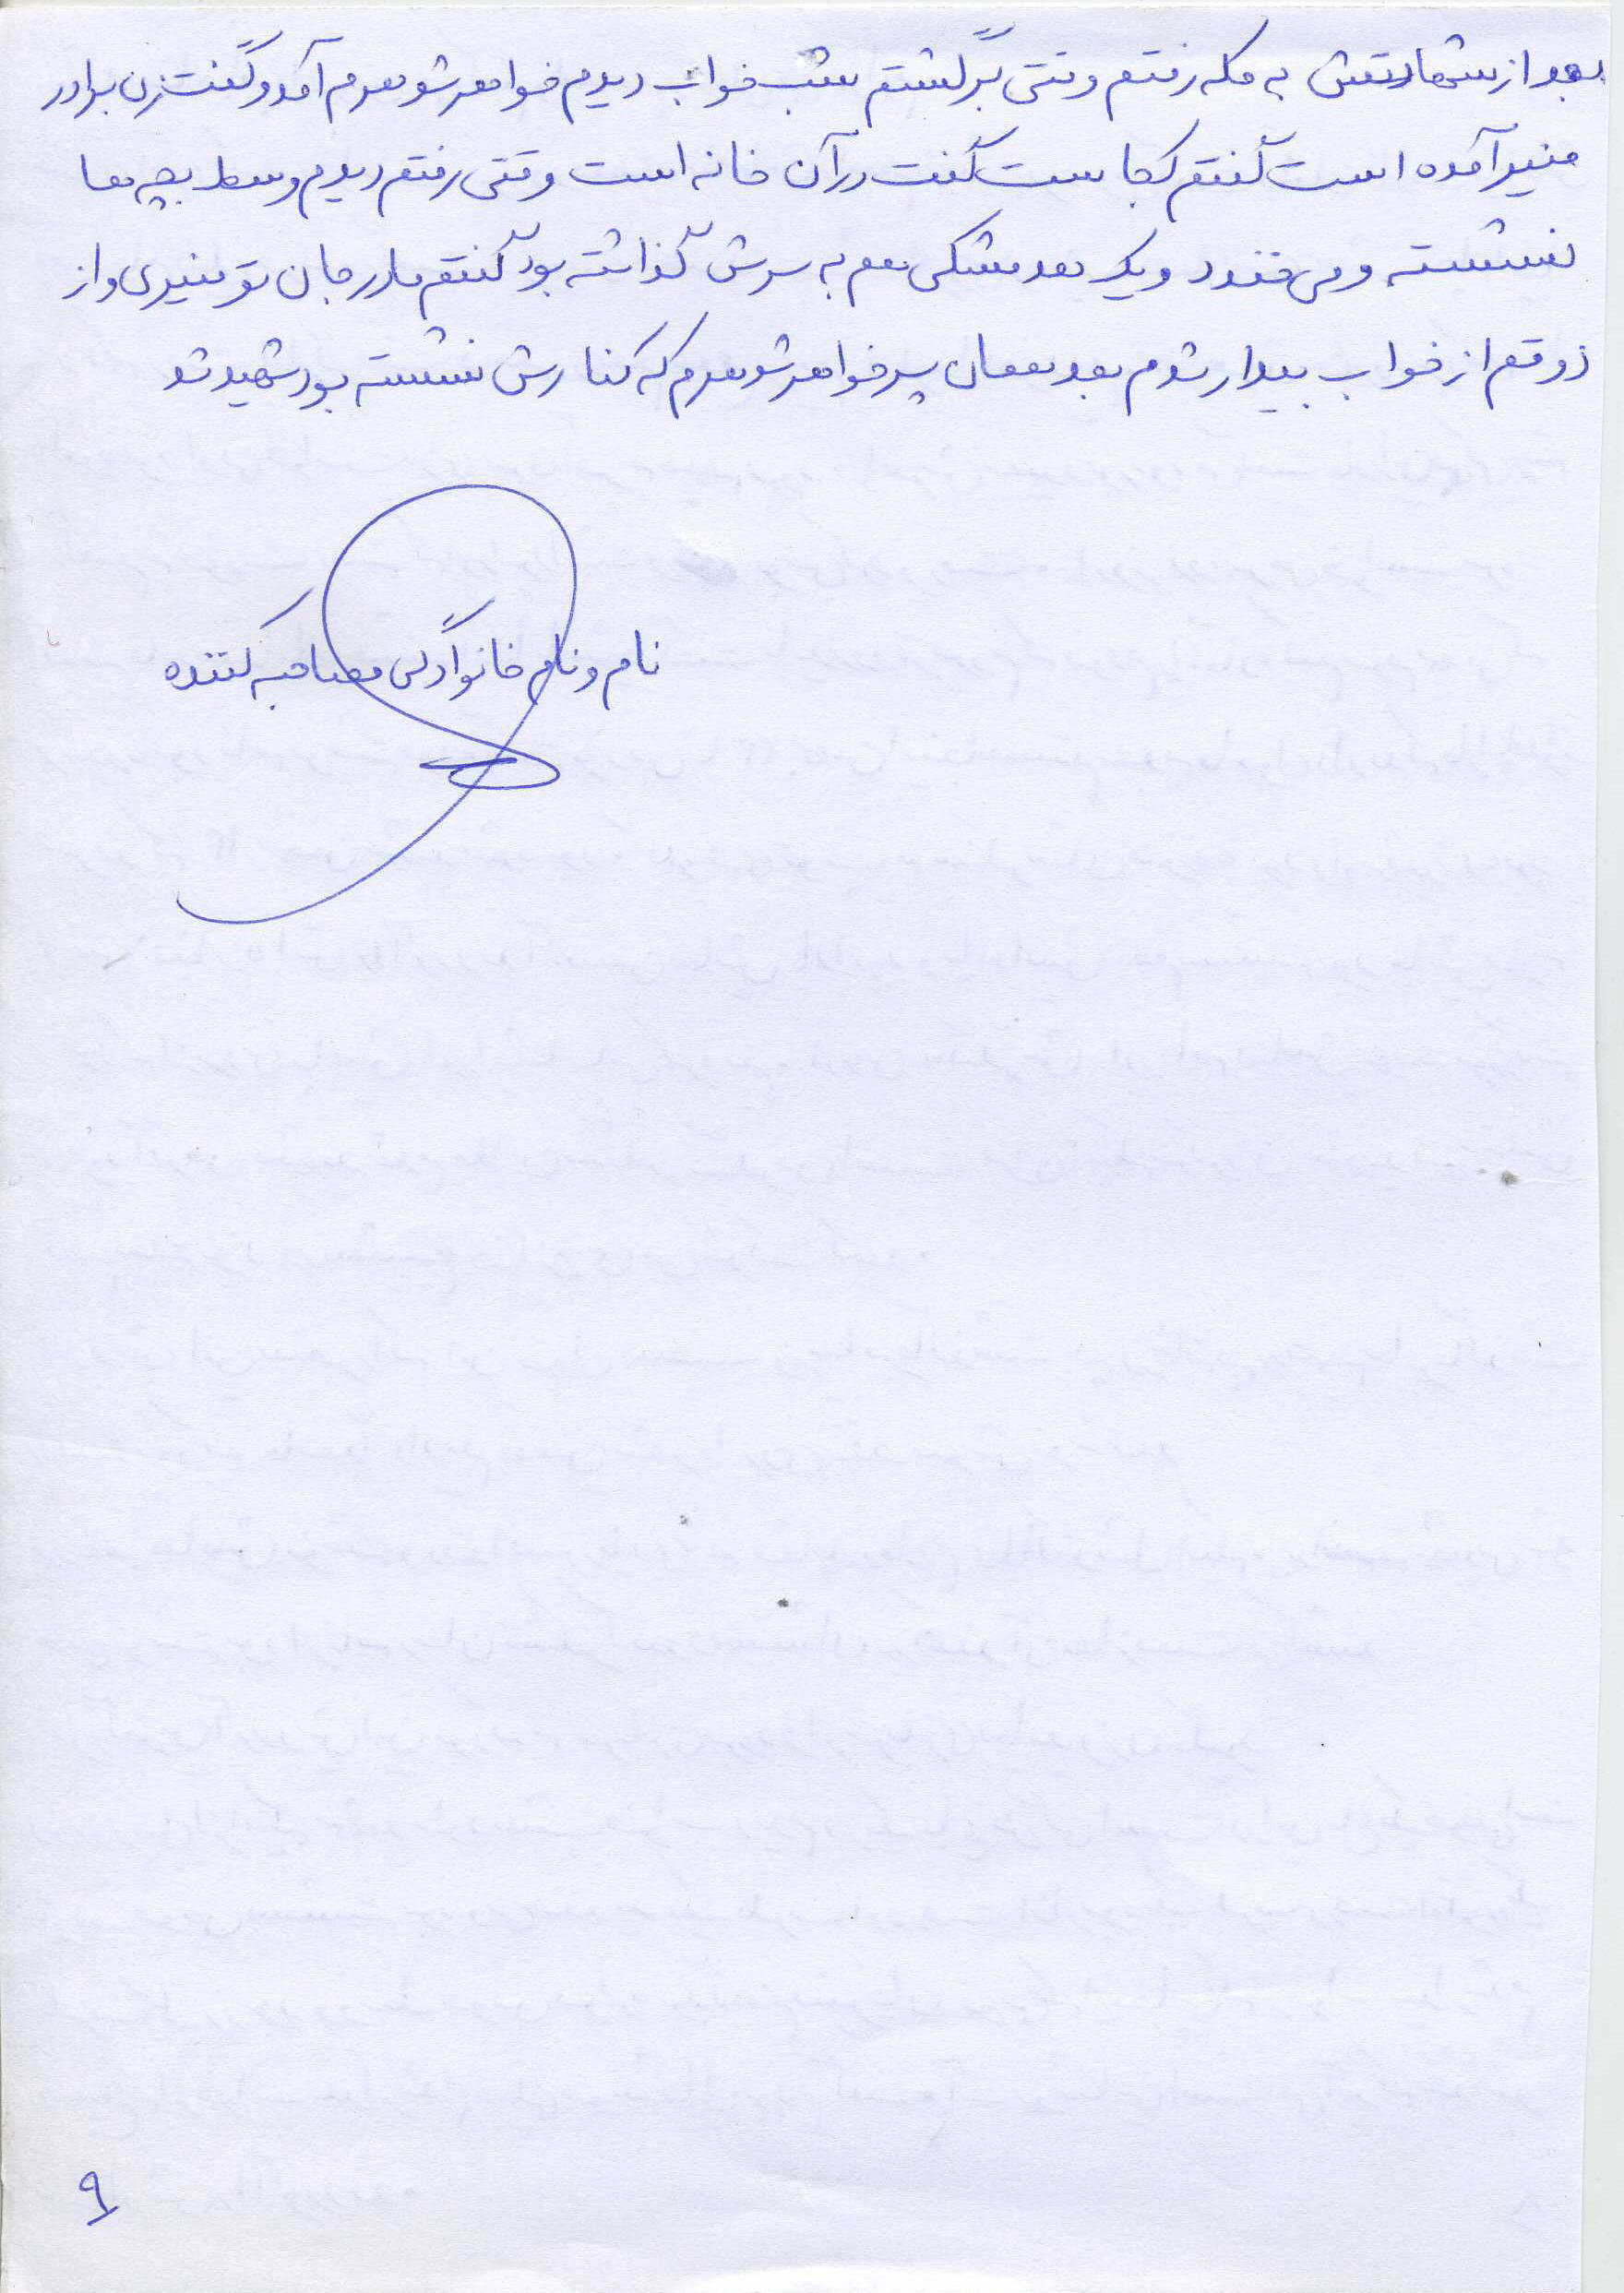 بعد از شهادتش به مکه رفتم وقتی برگشتم شب خواب دیدم خواهر شوهرم آمد و گفت زن برادر
منیر آمده است گفتم کجاست گفت در آن خانه است وقتی رفتم دیدم وسط بچه ها
نشسته و می خندد و یک هد مشکی هم به سرش گذاشته بود گفتم مادر جان تو منیری و از
ذوقم از خواب بیدار شدم بعد همان پسر خواهر شوهرم که کنارش نشسته بود شهید شد
نام و نام خانوادگی مصاحبه کننده
۹